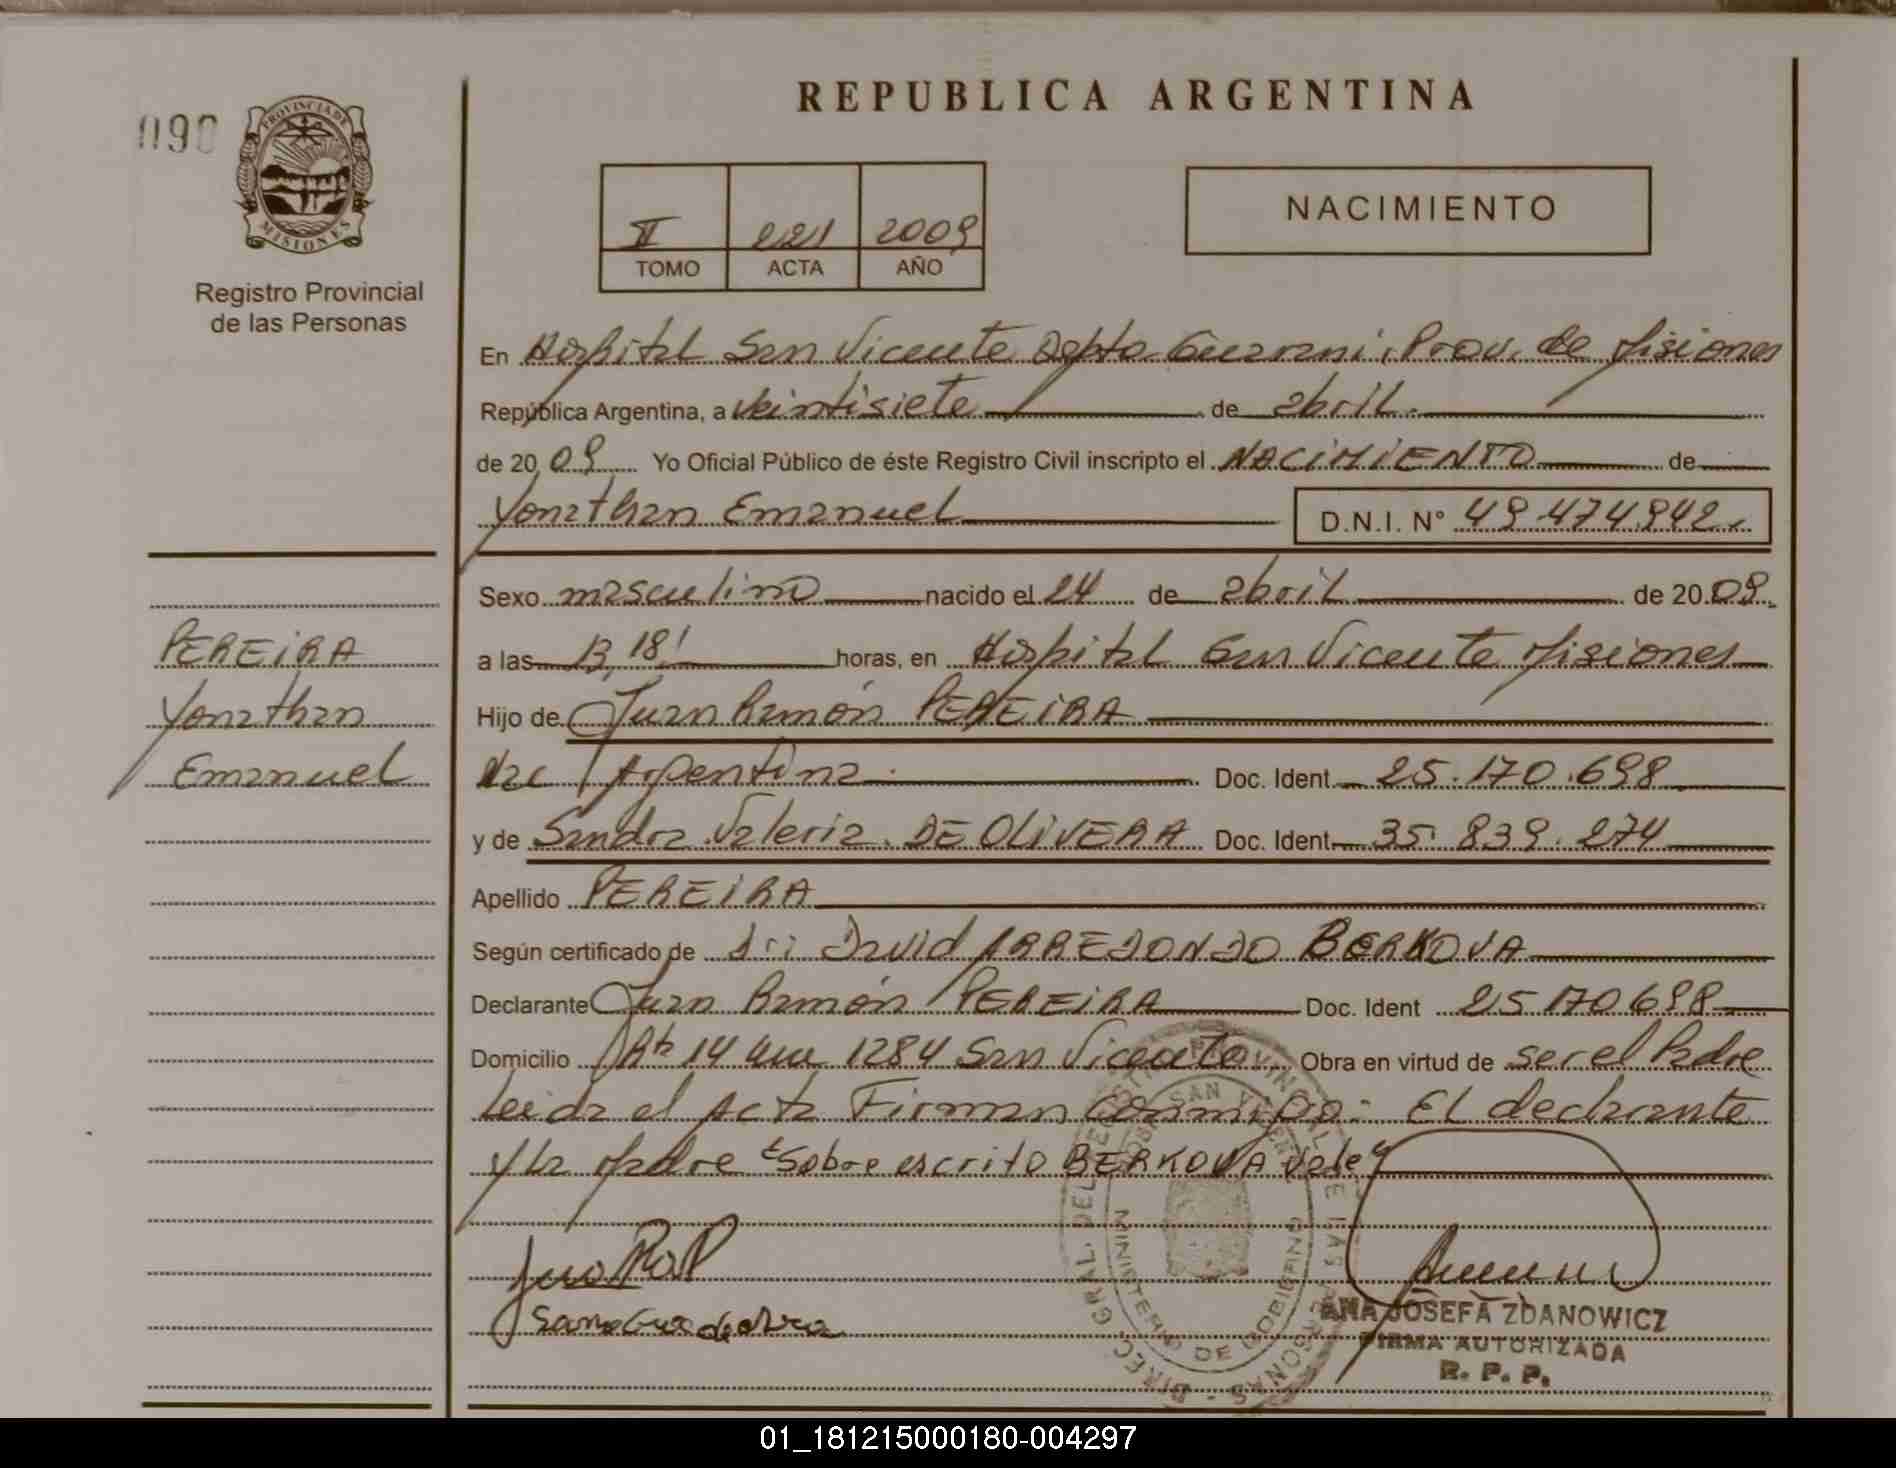 REPUBLICA ARGENTINA
090
PROVINCIA DE
MISIONES
Registro Provincial
de las Personas
II 221 2009
TOMO ACTA AÑO
NACIMIENTO
En Hospital San Vicente Depto Guarani, Prov. de Misiones
República Argentina, a veintisiete de abril.
de 2009 Yo Oficial Público de éste Registro Civil inscripto el NACIMIENTO de
Yonathan Emanuel D.N.I. N° 49.474.942
Sexo masculino nacido el 24 de abril de 2009.
PEREIRA
Yonathan
Emanuel
a las 13,18 horas, en Hospital San Vicente Misiones
Hijo de Juan Ramón PEREIRA
Nac Argentina. Doc. Ident 25.170.698
y de Sandra Valeria DE OLIVERA Doc. Ident 35.839.274
Apellido PEREIRA
Según certificado de Dr: David ARREDONDO BERKOVA
Declarante Juan Ramón PEREIRA Doc. Ident 25170698
Domicilio Rta 14 1284 San Vicente Obra en virtud de ser el Padre
Leida el Acta Firman Conmigo: El declarante
y la Madre Sobre escrito BERKOVA Vale
DIREC. GRAL. DEL REGISTRO PROVINCIAL DE LAS PERSONAS
SAN VICENTE
MINISTERIO DE GOBIERNO
ANA JOSEFA ZDANOWICZ
FIRMA AUTORIZADA
R. P. P.
01_181215000180-004297